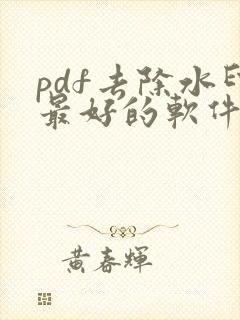 pdf去除水印
最好的軟件
黃春輝